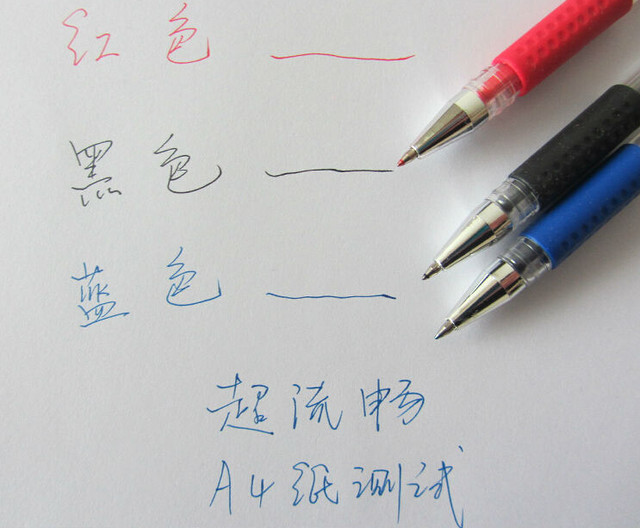 红色
黑色
蓝色
超流畅
A4纸测试